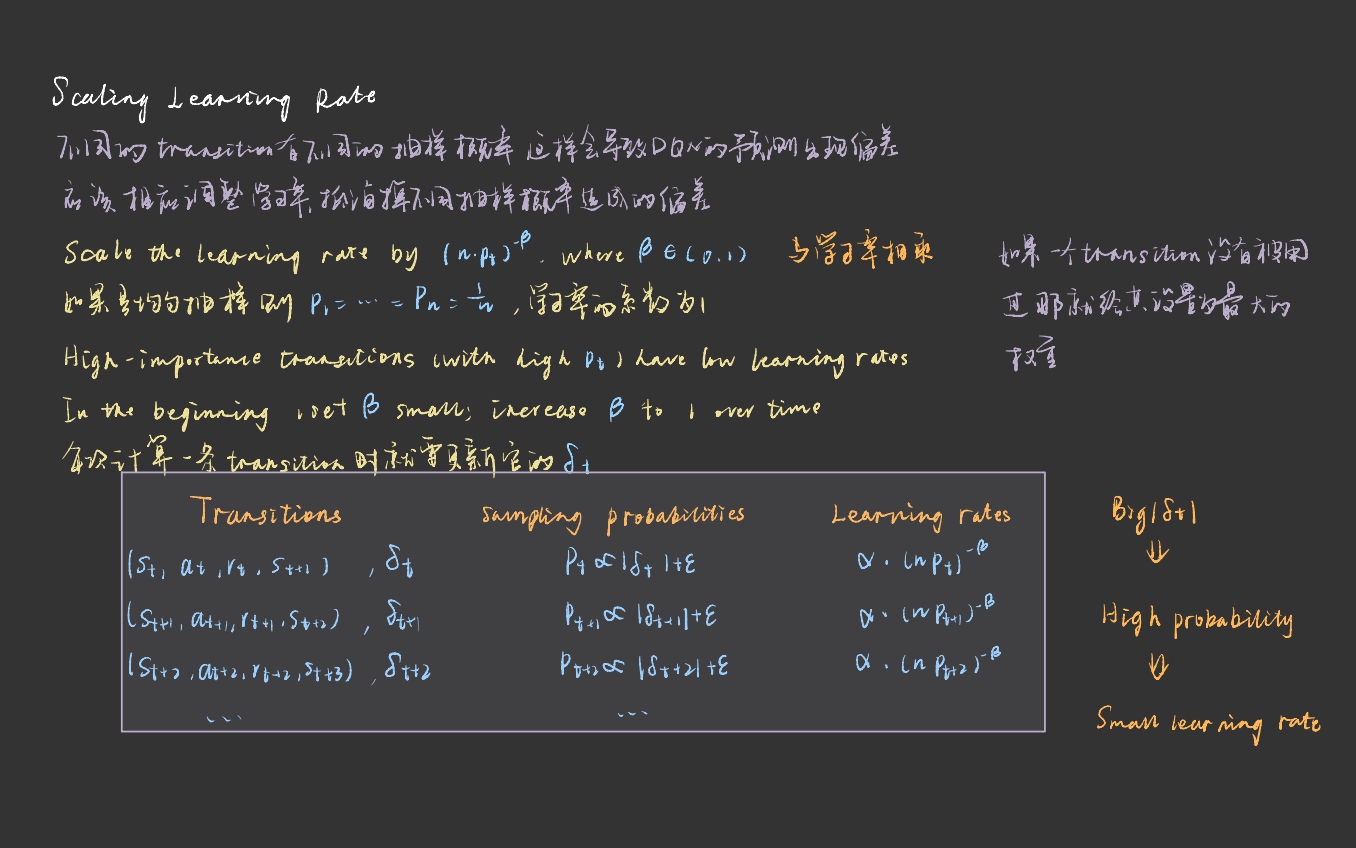 Scaling Learning Rate
不同的transition有不同的抽样概率 这样会导致DQN的预测出现偏差
应该相应调整学习率,抵消掉不同抽样概率造成的偏差
Scale the learning rate by (n·pt)^-β, where β∈(0,1) 与学习率相乘
如果是均匀抽样则 P1=⋯=Pn=1/n ,学习率的系数为1
High-importance transitions (with high pt) have low learning rates
In the beginning, set β small; increase β to 1 over time
每次计算一条transition时就需更新它的δt
如果一个transition没有被用
过 那就给其设置为最大的
权重
Transitions Sampling probabilities Learning rates
(St, at, rt, St+1), δt Pt ∝ |δt|+ε α·(n Pt)^-β
(St+1, at+1, rt+1, St+2), δt+1 Pt+1 ∝ |δt+1|+ε α·(n Pt+1)^-β
(St+2, at+2, rt+2, St+3), δt+2 Pt+2 ∝ |δt+2|+ε α·(n Pt+2)^-β
... ...
Big|δt|
⇓
High probability
⇓
Small learning rate